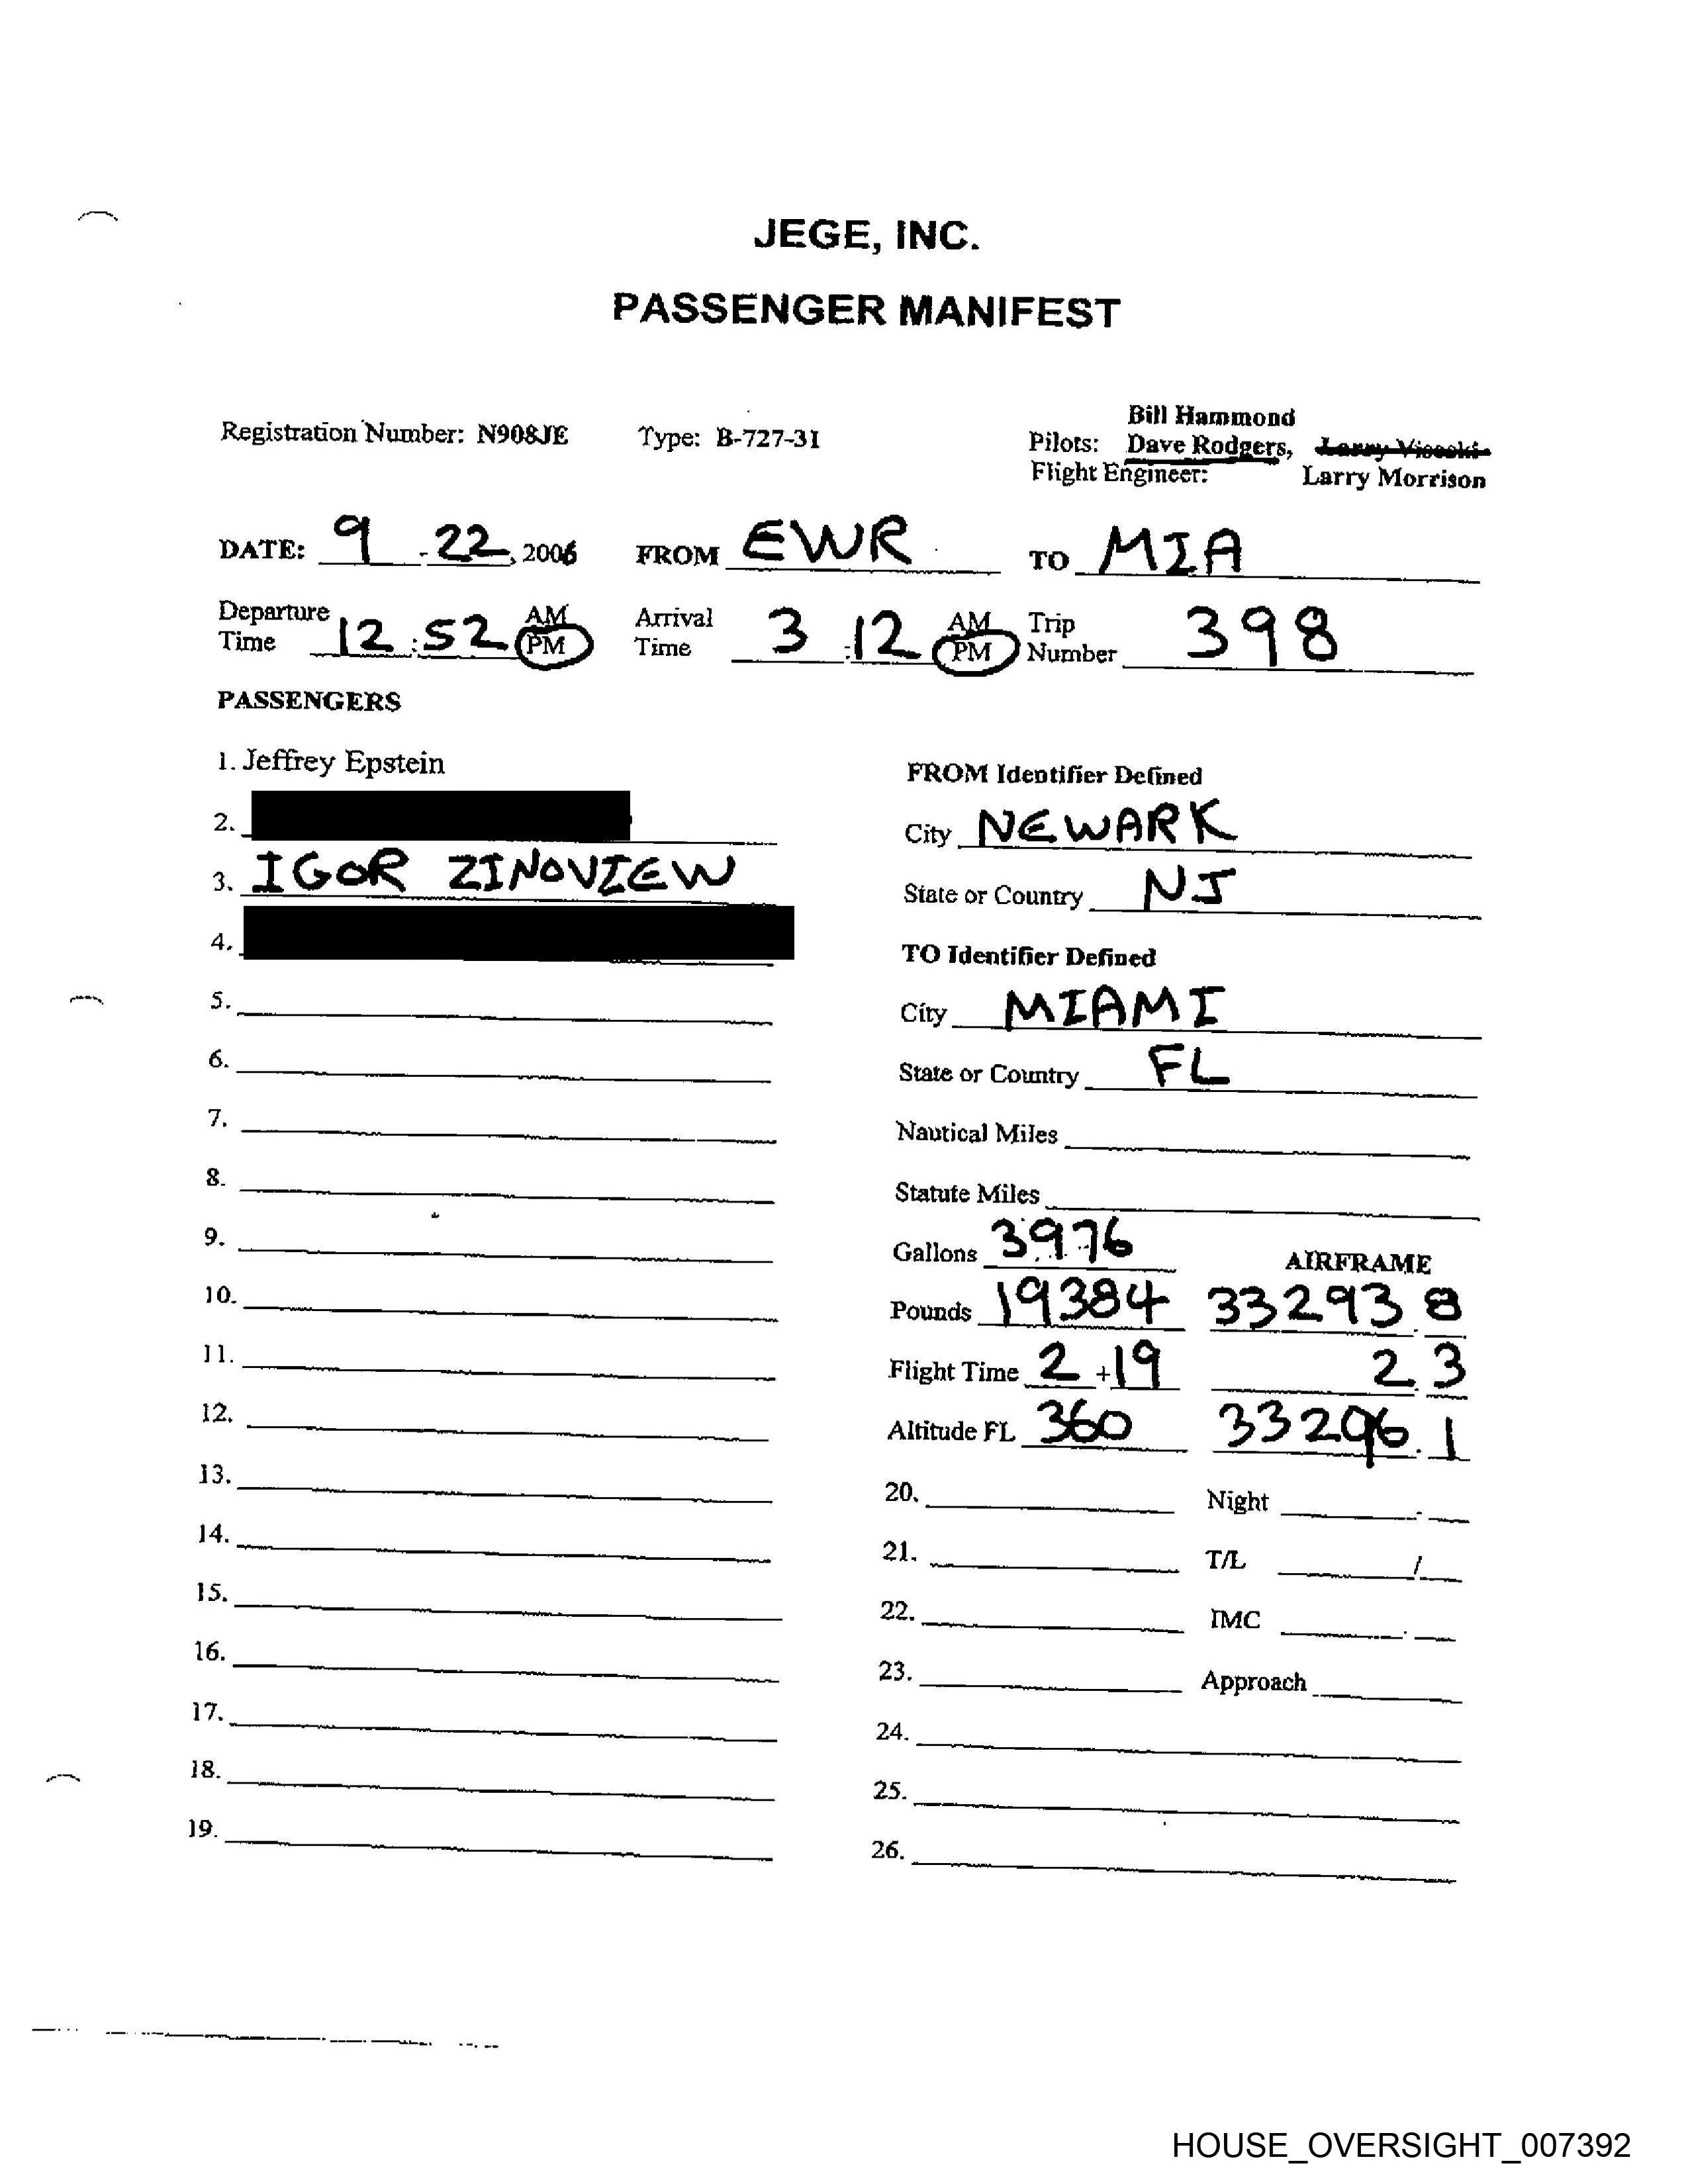 JEGE, INC.
PASSENGER MANIFEST
Registration Number: N908JE Type: B-727-31 Bill Hammond
Pilots: Dave Rodgers, Larry Visoski
Flight Engineer: Larry Morrison
DATE: 9 - 22, 2006 FROM EWR TO MIA
Departure Time 12:52 AM PM Arrival Time 3:12 AM PM Trip Number 398
PASSENGERS
1. Jeffrey Epstein
2.
3. IGOR ZINOVIEW
4.
5.
6.
7.
8.
9.
10.
11.
12.
13.
14.
15.
16.
17.
18.
19.
FROM Identifier Defined
City NEWARK
State or Country NJ
TO Identifier Defined
City MIAMI
State or Country FL
Nautical Miles
Statute Miles
Gallons 3976 AIRFRAME
Pounds 19384 33293.8
Flight Time 2+19 2.3
Altitude FL 360 33296.1
20. Night
21. T/L /
22. IMC
23. Approach
24.
25.
26.
HOUSE_OVERSIGHT_007392